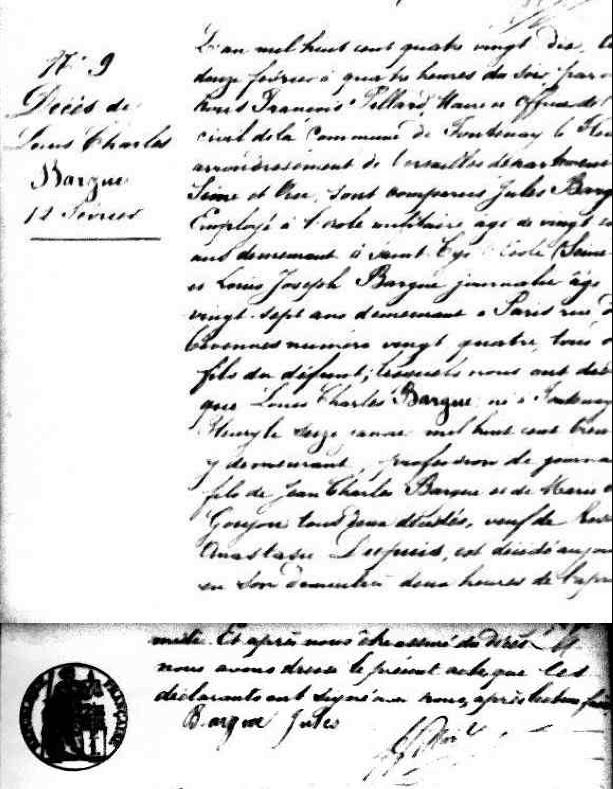 N° 9
Décès de
Louis Charles
Bargue
12 Février
L'an mil huit cent quatre vingt dix, le
douze février à quatre heures du soir par
nous François Pillard, Maire officier de l'
civil de la Commune de Fontenay le Fleu
arrondissement de Versailles département
Seine et Oise, sont comparus Jules Barg
Employé à l'école militaire âgé de vingt
ans demeurant à Saint Cyr l'école (Seine
et Louis Joseph Bargue journalier âgé
vingt-sept ans demeurant à Paris rue d
Cévennes numéro vingt quatre, tous d
fils du défunt; lesquels nous ont déc
que Louis Charles Bargue né à Fontenay
Fleury le seize janvier mil huit cent tren
y demeurant, profession de journa
fils de Jean Charles Bargue et de Marie
Goujon tous deux décédés, veuf de
Anastasie est décédé aujou
en son demeure à deux heures de l'apr
midi. Et après nous être assuré du décès
nous avons dressé le présent acte, que les
déclarants ont signé avec nous, après lecture faite
Bargue Jules
RÉPUBLIQUE FRANÇAISE